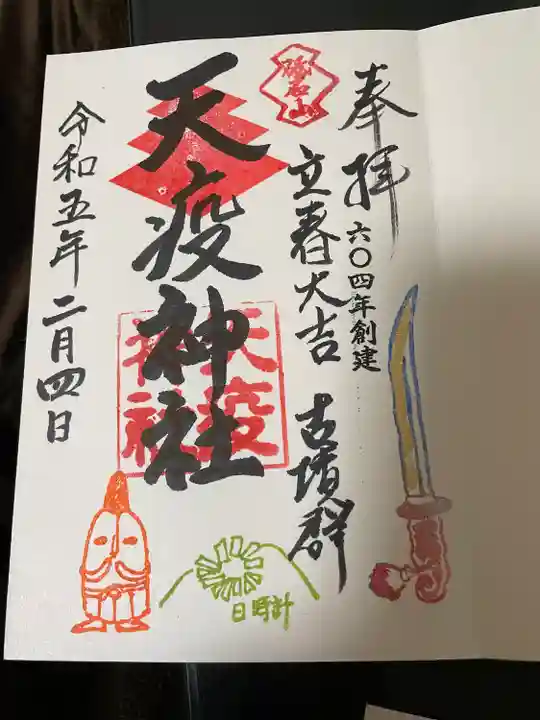 奉拝
六〇四年創建
砥石山
立春大吉
古墳群
天疫神社
天疫
神社
日時計
令和五年二月四日